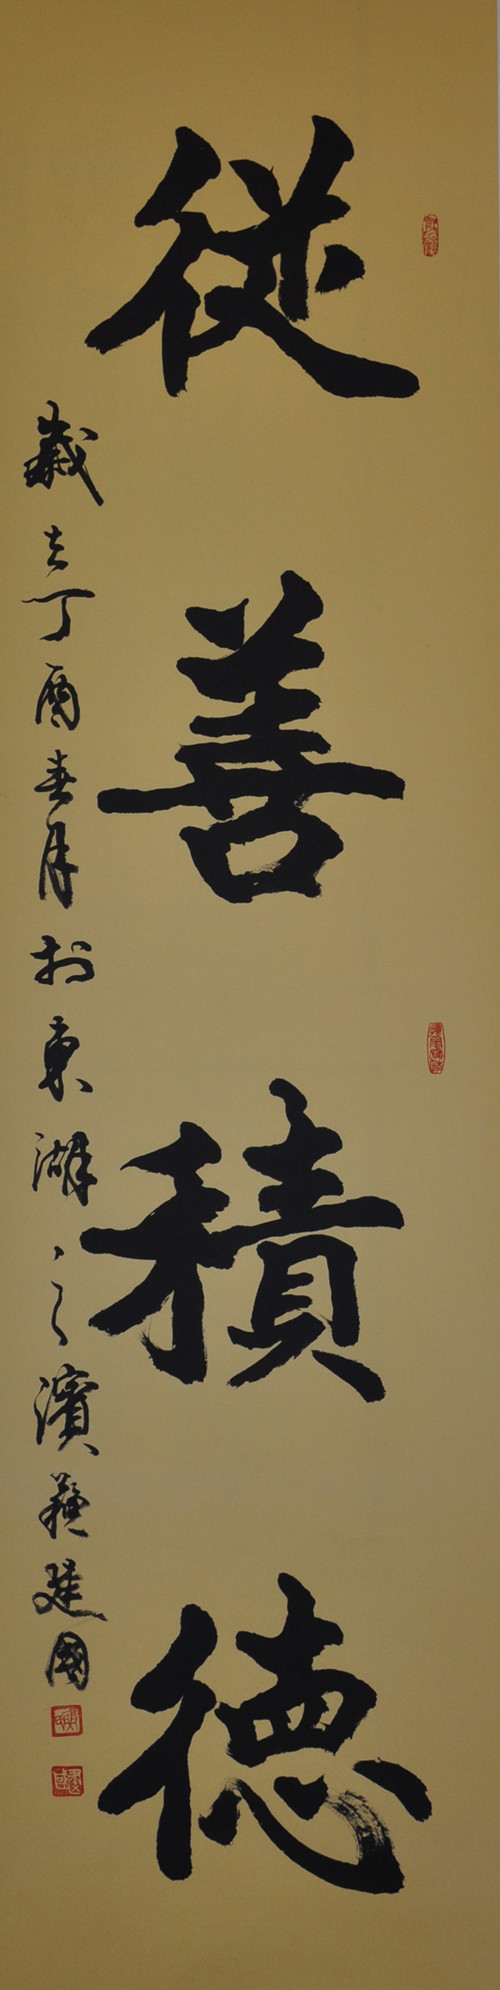 從善積德
歲在丁酉春月於東湖之濱蘇建國